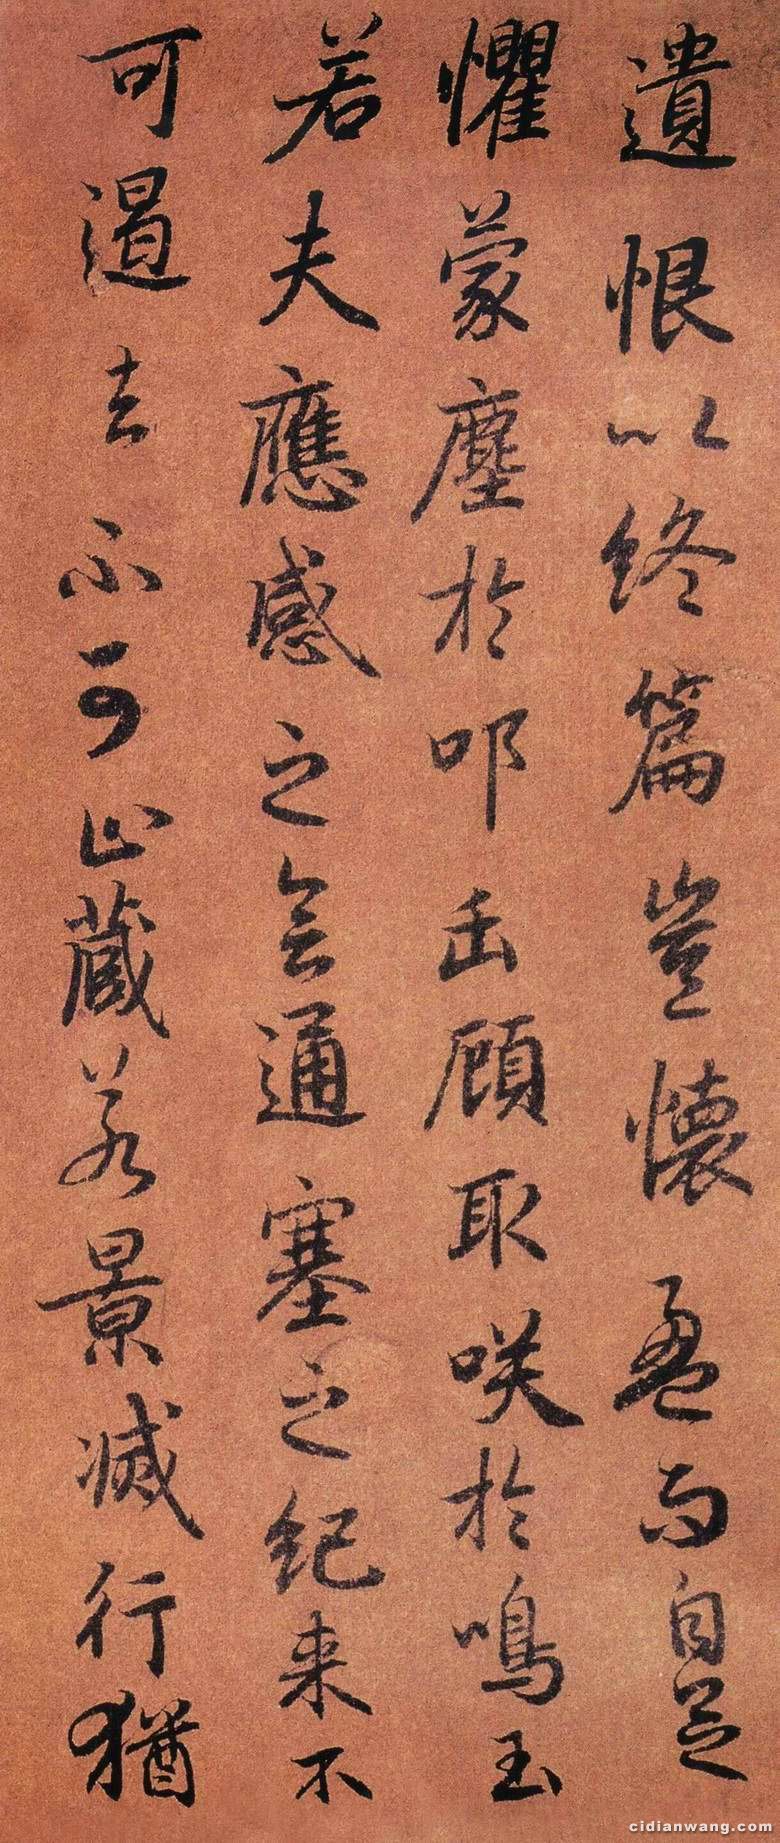 遺恨以終篇豈懷盈而自足
懼蒙塵於叩缶顧取咲於鳴玉
若夫應感之會通塞之紀来不
可遏去不可止蔵若景滅行猶
cidianwang.com